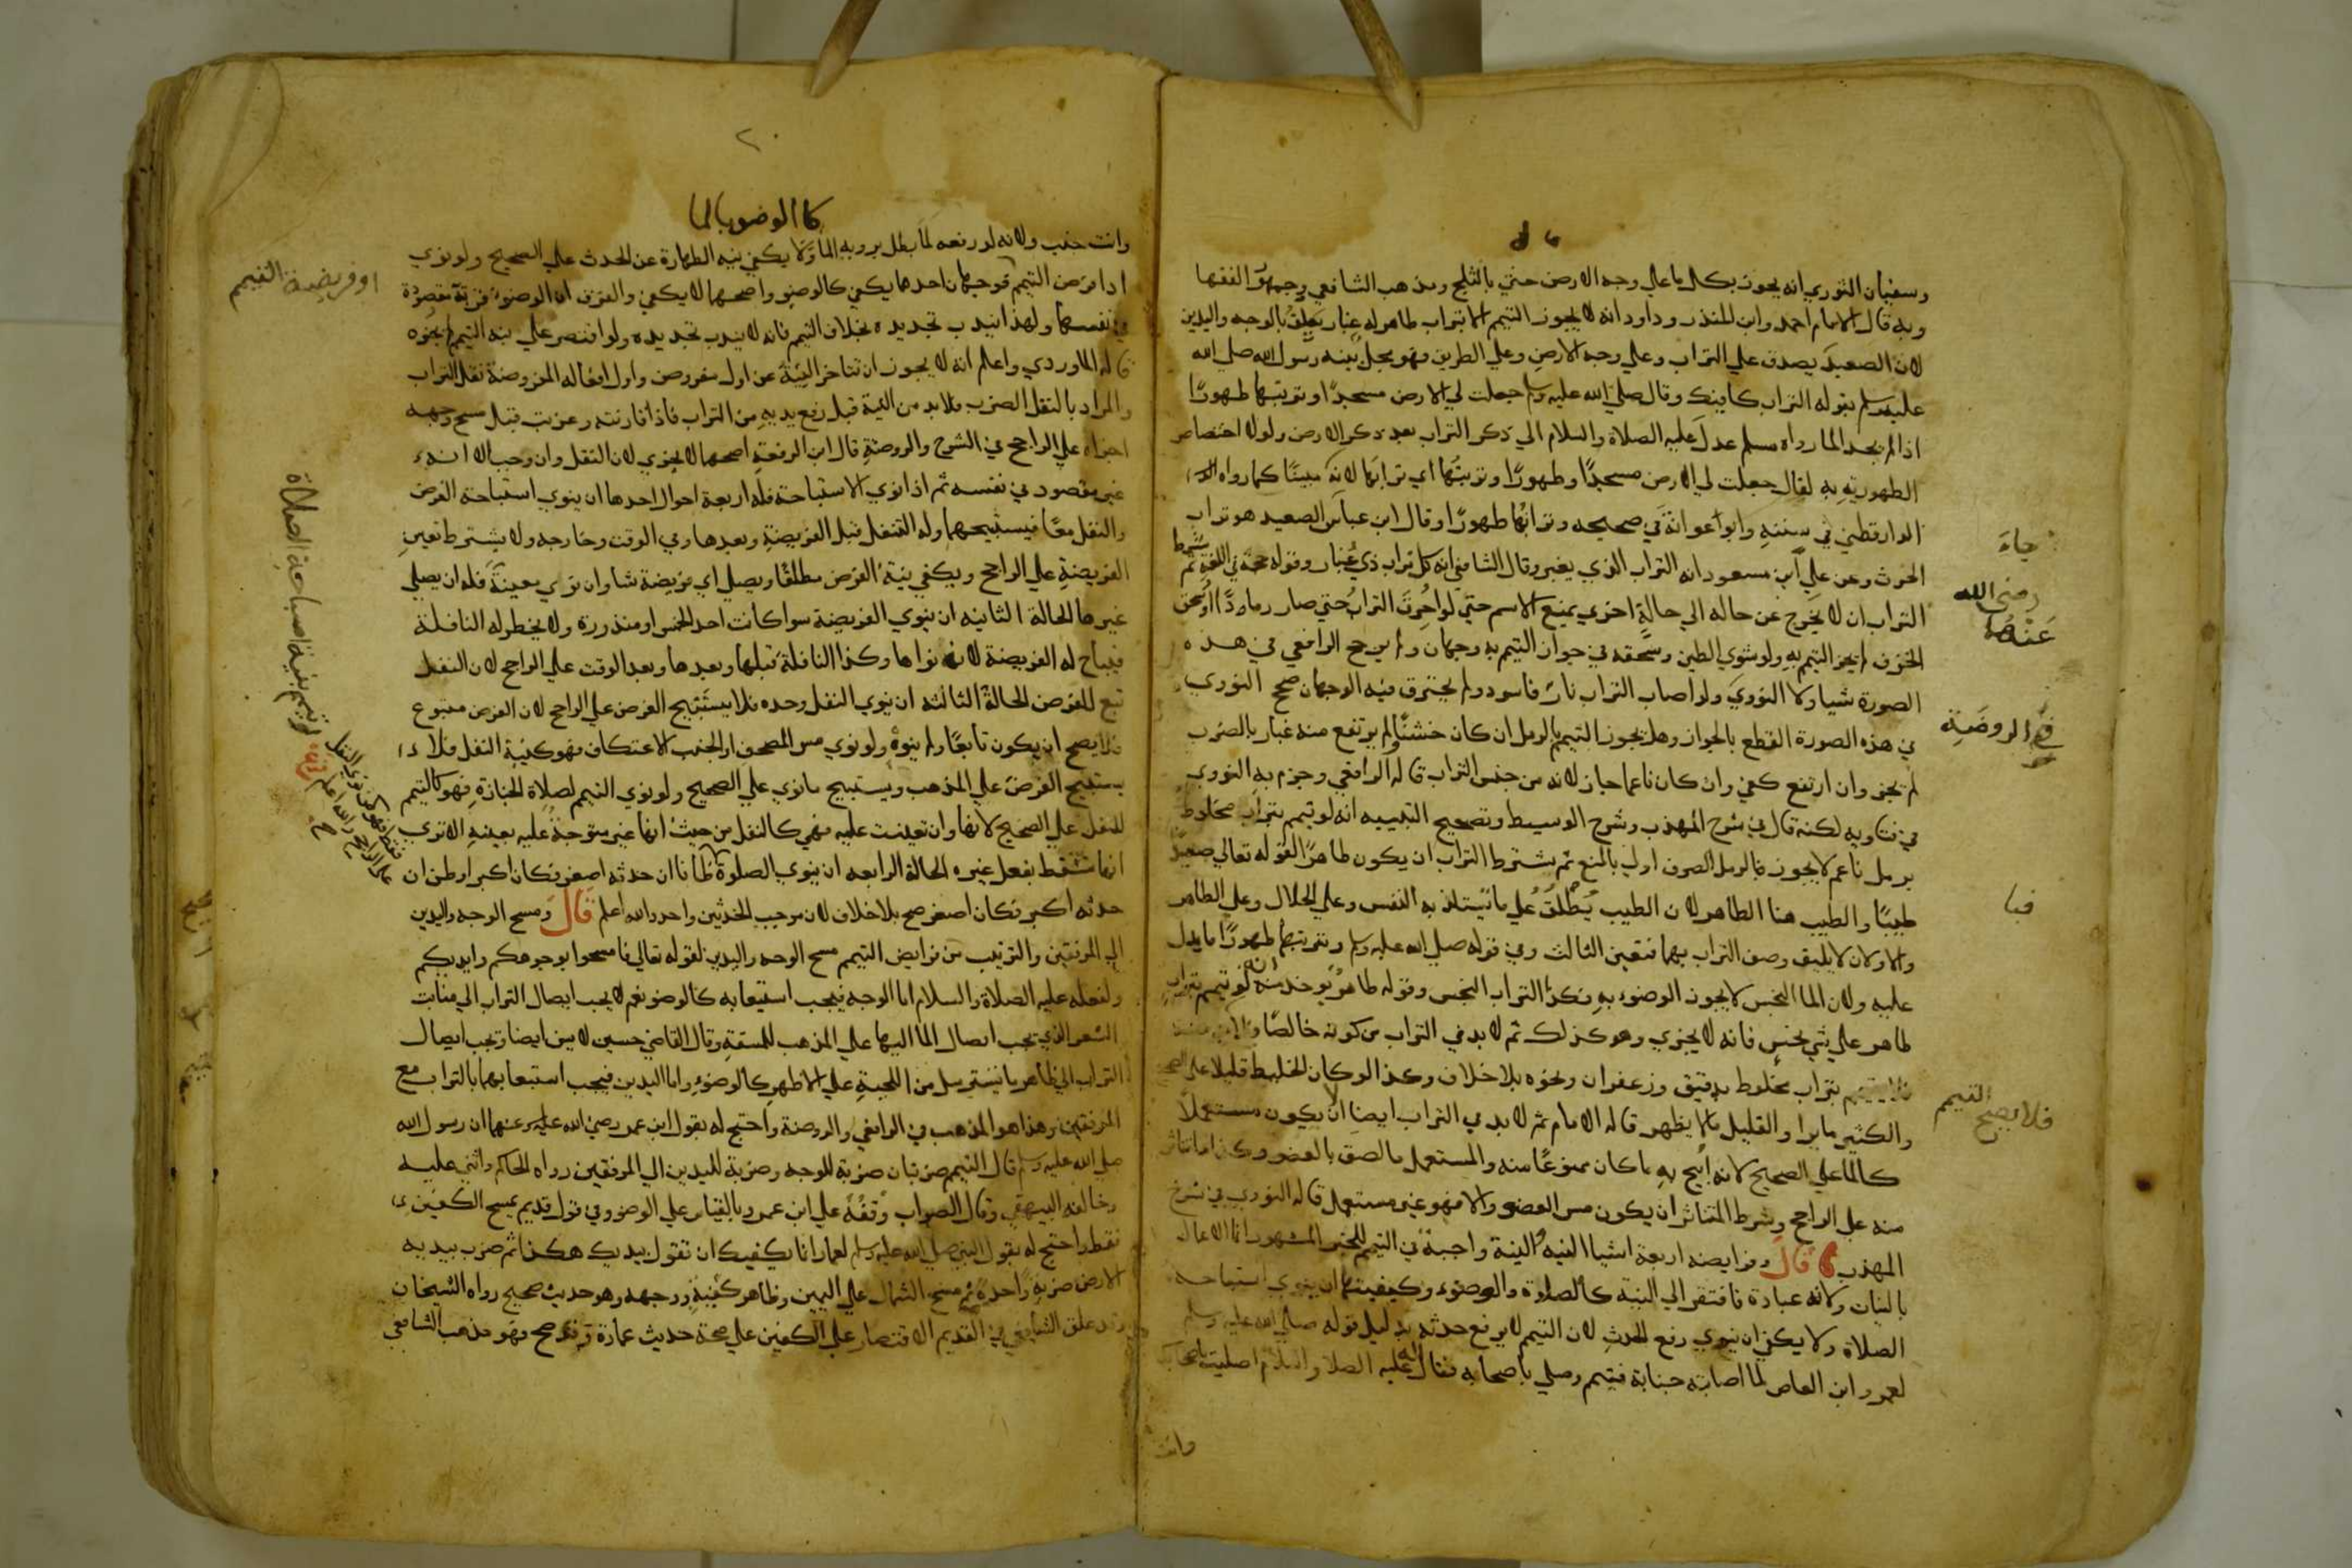 وسفيان الثوري انه يجوز بكل ما على وجه الارض حتي بالثلج ومذهب الشافعي وجمهور الفقها
وبه قال الامام احمد وابن المنذر وداود انه لا يجوز التيمم الا بتراب طاهر له غبار يعلق بالوجه واليدين
لان الصعيد يصدق علي التراب وعلي وجه الارض وعلي الطريق فهو مجمل بينه رسول الله صلي الله
عليه وسلم بقوله التراب كافيك وقال صلي الله عليه وسلم جعلت لي الارض مسجدًا وتربتها طهورًا
اذا لم يجد الما رواه مسلم عدل عليه الصلاة والسلام الي ذكر التراب بعد ذكر الارض ولولا اختصاص
الطهورية به لقال جعلت لي الارض مسجدًا وطهورًا وتربتها اي ترابها لانه مبينًا كما رواه
الدارقطني في سننه وابوا عوانة في صحيحه وترابها طهورًا وقال ابن عباس الصعيد هو تراب
جاءَ
الحرث وعن علي ابن مسعود انه التراب الذي يغبر وقال الشافعي انه كل تراب ذي غبار وقوله حجة في اللغة ثم يشترط
رضي الله عنهما
التراب ان لا يخرج عن حاله الي حالة اخري يمنع الاسم حتي لو احرق التراب حتي صار رمادًا او سحق
الخزف لم يجز التيمم به ولو شوي الطين وسحقه في جواز التيمم به وجهان ولم يرجح الرافعي في هذه
الصورة شيا ولا النووي ولو اصاب التراب نار فاسود ولم يحترق فيه الوجهان صحح النوري
في الروضة
في هذه الصورة القطع بالجواز وهل يجوز التيمم بالرمل ان كان خشنًا ولم يرتفع منه غبار بالضرب
لم يجز وان ارتفع كفي وان كان ناعما جاز لانه من جنس التراب قاله الرافعي وجزم به النووي
في فتاويه لكنه قال في شرح المهذب وشرح الوسيط وتصحيح التنبيه انه لو تيمم بتراب مخلوط
برمل ناعم لا يجوز فالرمل الصرف اولي بالمنع ثم شرط التراب ان يكون طاهرًا لقوله تعالي صعيدًا
طيبًا والطيب هنا الطاهر لان الطيب يطلق علي ما تستلذ به النفس وعلي الحلال وعلي الطاهر
والاولان لا يليق وصف التراب بهما فتعين الثالث وفي قوله صلي الله عليه وسلم وتربتها طهورًا ما يدل
عليه ولان الما النجس لا يجوز الوضوء به فكذا التراب النجس وقوله طاهر يوخذ منه انه لو تيمم بتراب
طاهر علي شي نجس فانه لا يجزي وهو كذلك ثم لا بد في التراب من كونه خالصًا
بتراب مخلوط بدقيق وزعفران ونحوه بلا خلاف وكذا لو كان الخليط قليلا علي الصحيح
فلا يصح التيمم
والكثير ما يرا والقليل ما لا يظهر قاله الامام ثم لا بد في التراب ايضا ان لا يكون مستعملًا
كالما علي الصحيح لانه ابيح به ما كان ممنوعًا منه والمستعمل ما لصق بالعضو وكذا ما تناثر
منه علي الراجح وشرط المتناثر ان يكون مس العضو والا فهو غير مستعمل قاله النووي في شرح
المهذب قال وفرايضه اربعة اشيا النيه النية واجبة في التيمم للخبر المشهور انما الاعمال
بالنيات ولانه عبادة فافتقر الي النية كالصلاة والوضوء وكيفيتها ان ينوي استباحه
الصلاة ولا يكفي ان ينوي رفع الحدث لان التيمم لا يرفع حدثه بدليل قوله صلي الله عليه وسلم
لعمرو ابن العاص لما اصابته جنابة فتيمم وصلي باصحابه فقال عليه الصلاة والسلام اصليت باصحابك
وانت
٢٠
كالوضو بالما
وانت جنب ولانه لو رفعه لما بطل بروية الما ولا يكفي نية الطهارة عن الحدث علي الصحيح ولو نوي
ادا فرض التيمم فوجهان احدهما يكفي كالوضو واصحهما لا يكفي والفرق ان الوضوء قربة مقصودة
او فريضة التيمم
في نفسها ولهذا يندب تجديده بخلاف التيمم فانه لا يندب تجديده ولو اقتصر علي نية التيمم لم يجزه
قاله الماوردي واعلم انه لا يجوز ان تتاخر النية عن اول مفروض واول افعاله المفروضة نقل التراب
والمراد بالنقل الضرب فلا بد من النية قبل رفع يديه من التراب فاذا قارنته وعزبت قبل مسح وجهه
اجزاه علي الراجح في الشرح والروضة قال ابن الرفعة اصحهما لا يجزي لان النقل وان وجب الا انه
غير مقصود في نفسه ثم اذا نوي الاستباحة فله اربعة احوال احدها ان ينوي استباحة الفرض
والنفل معًا فيستبيحهما وله التنفل قبل الفريضة وبعدها وفي الوقت وخارجه ولا يشترط تعيين
الفريضة علي الراجح ويكفي نية الفرض مطلقًا ويصلي اي فريضة شا وان نوي معينة فله ان يصلي
غيرها الحالة الثانيه ان ينوي الفريضة سوا كانت احد الخمس او منذورة ولا يخطر له النافلة
فيباح له الفريضة لانه نواها وكذا النافلة قبلها وبعدها وبعد الوقت علي الراجح لان النفل
تبع للفرض الحالة الثالثه ان ينوي النفل وحده فلا يستبيح الفرض علي الراجح لان الفرض متبوع
فلا يصح ان يكون تابعًا ولم ينوه ولو نوي مس المصحف او الجنب الاعتكاف فهو كنية النفل فلا
يستبيح الفرض علي المذهب ويستبيح ما نوي علي الصحيح ولو نوي التيمم لصلاة الجنازة فهو كالتيمم
للنفل علي الصحيح لانها وان تعينت عليه فهي كالنفل من حيث انها غير متوجهة عليه بعينه الا تري
انها تسقط بفعل غيره الحالة الرابعه ان ينوي الصلوة ظانا ان حدثه اصغر فكان اكبر او ظن ان
حدثه اكبر فكان اصغر صح بلا خلاف لان موجب الحدثين واحد والله اعلم قال ومسح الوجه واليدين
الي المرفقين والترتيب من فرايض التيمم مسح الوجه واليدين لقوله تعالي فامسحوا بوجوهكم وايديكم
ولفعله عليه الصلاة والسلام اما الوجه فيجب استيعابه كالوضو نعم لا يجب ايصال التراب الي منابت
الشعر الذي يجب ايصال الما اليها علي المذهب للمشقة وقال القاضي حسين لا يسن ايضا وتجب ايصال
التراب الي ظاهر ما يسترسل من اللحية علي الاظهر كالوضوء واما اليدين فيجب استيعابهما بالتراب مع
المرفقين وهذا هو المذهب في الرافعي والروضة واحتج له بقول ابن عمر رضي الله عنهما ان رسول الله
صلي الله عليه وسلم قال التيمم ضربتان ضربة للوجه وضربة لليدين الي المرفقين رواه الحاكم واثني عليه
وخالفه البيهقي وقال الصواب وقفه علي ابن عمر وبالقياس علي الوضو وفي قول قديم يمسح الكفين
فقط واحتج له بقول النبي صلي الله عليه وسلم لعمار انما يكفيك ان تقول بيديك هكذا ثم ضرب بيديه
الارض ضربة واحدة ثم مسح الشمال علي اليمين وظاهر كفيه ووجهه وهو حديث صحيح رواه الشيخان
وقد علق الشافعي في القديم الاقتصار علي الكفين علي صحة حديث عمارة وقد صح فهو مذهب الشافعي